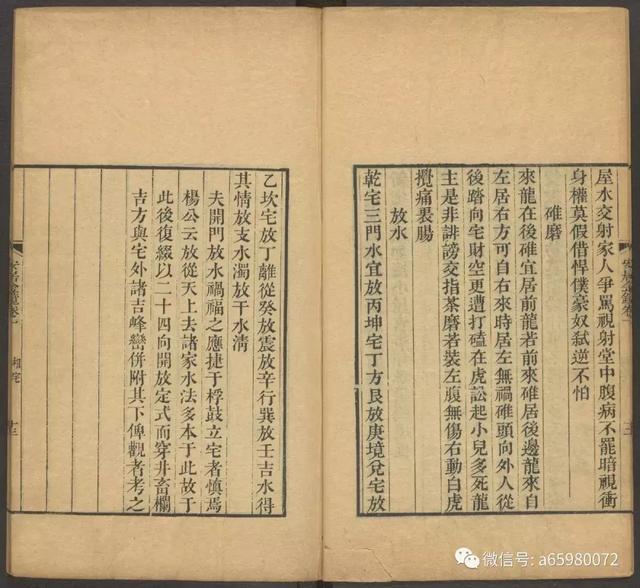 屋水交射家人爭罵視射堂中腹病不罷暗視衝
身權莫假借悍僕豪奴弑逆不怕
碓磨
來龍在後碓宜居前龍若前來碓居後邊龍來自
左居右方可自右來時居左無禍碓頭向外人從
後踏向宅財空更遭打磕在虎訟起小兒多死龍
主是非誹謗交指茶磨若裝左腹無傷右動白虎
攪痛裂腸
放水
乾宅三門水宜放丙坤宅丁方艮放庚境兌宅放
乙坎宅放丁離從癸放震放辛行巽放壬吉水得
其情放支水濁放干水清
夫開門放水禍福之應捷于桴鼓立宅者慎焉
楊公云放從天上去諸家水法多本于此故于
此後復綴以二十四向開放定式而穿井畜欄
吉方與宅外諸吉峰巒併附其下俾觀者考之
相宅
十三
微信号: a65980072